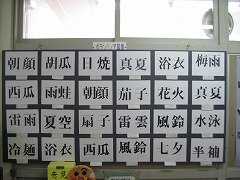 朝顔 胡瓜 日焼 真夏 浴衣 梅雨
西瓜 雨蛙 朝顔 茄子 花火 真夏
雷雨 夏空 扇子 雷雲 風鈴 水泳
冷麺 浴衣 西瓜 風鈴 七夕 半袖